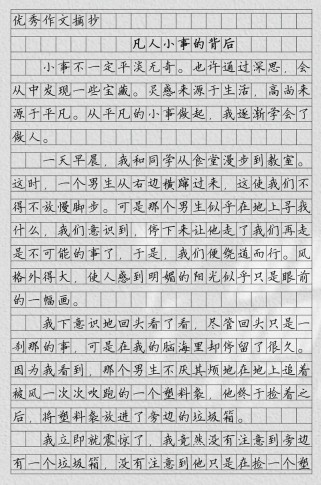 优秀作文摘抄
凡人小事的背后
小事不一定平淡无奇。也许通过深思，会
从中发现一些宝藏。灵感来源于生活，高尚来
源于平凡。从平凡的小事做起，我逐渐学会了
做人。
一天早晨，我和同学从食堂漫步到教室。
这时，一个男生从右边横蹿过来，这使我们不
得不放慢脚步。可是那个男生似乎在地上寻找
什么，我们意识到，停下来让他走了我们再走
是不可能的事了，于是，我们便绕道而行。风
格外得大，使人感到明媚的阳光似乎只是眼前
的一幅画。
我下意识地回头看了看，尽管回头只是一
刹那的事，可是在我的脑海里却停留了很久。
因为我看到，那个男生不厌其烦地在地上追着
被风一次次吹跑的一个塑料袋，他终于捡着之
后，将塑料袋放进了旁边的垃圾箱。
我立即就震惊了，我竟然没有注意到旁边
有一个垃圾箱，没有注意到他只是在捡一个塑